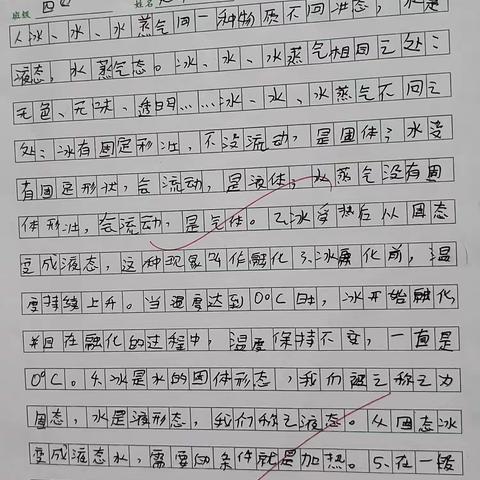 班级 四 姓名
1.冰、水、水蒸气同一种物质不同状态，水是
液态，水蒸气态。冰、水、水蒸气相同之处：
无色、无味、透明……冰、水、水蒸气不同之
处：冰有固定形状，不没流动，是固体；水没
有固定形状，会流动，是液体；水蒸气没有固
体形状，会流动，是气体。2.冰受热后从固态
变成液态，这种现象叫作融化 3.冰融化前，温
度持续上升。当温度达到0℃时，冰开始融化
并且在融化的过程中，温度保持不变，一直是
0℃。4.冰是水的固体形态，我们称之为
固态，水是液形态，我们称之液态。从固态冰
变成液态水，需要的条件就是加热。5.在一般